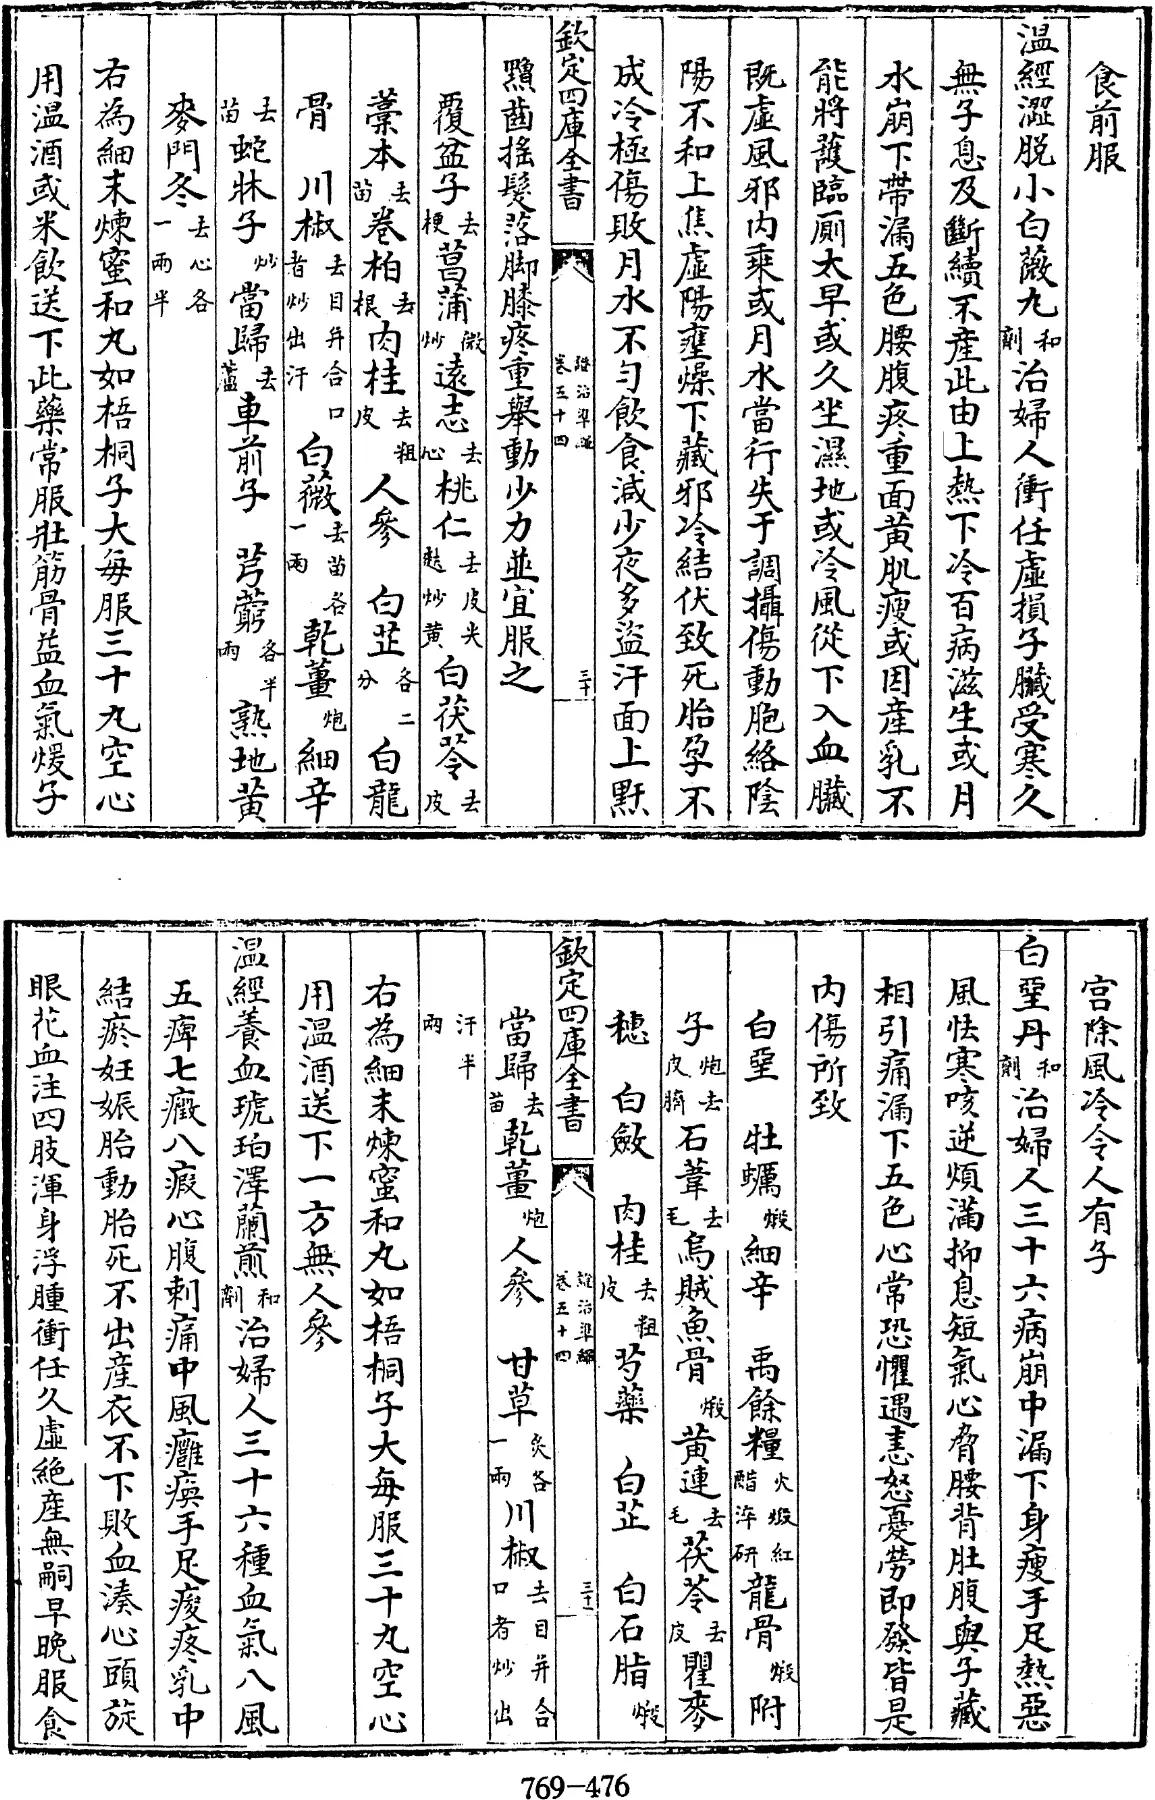 食前服
温經澀脱小白薇丸和劑治婦人衝任虛損子臟受寒久
無子息及斷續不產此由上熱下冷百病滋生或月
水崩下帶漏五色腰腹疼重面黃肌瘦或因產乳不
能將護臨厠太早或久坐濕地或冷風從下入血臟
既虛風邪内乗或月水當行失于調攝傷動胞絡陰
陽不和上焦虛陽壅燥下藏邪冷結伏致死胎孕不
成冷極傷敗月水不匀飲食減少夜多盜汗面上䵟
欽定四庫全書 證治凖繩卷五十四 三十一
䵳齒搖髮落脚膝疼重舉動少力並宜服之
覆盆子去梗菖蒲微炒遠志去心桃仁去皮尖麩炒黄白茯苓去皮
藁本去苗卷柏去根肉桂去粗皮 人參 白芷各二分 白龍
骨 川椒去目并合口者炒出汗 白薇去苗各一兩乾薑炮細辛
去苗蛇牀子炒 當歸去蘆車前子 芎藭各半兩 熟地黄
麥門冬去心各一兩半
右為細末煉蜜和丸如梧桐子大每服三十丸空心
用温酒或米飲送下此藥常服壯筋骨益血氣煖子
宫除風冷令人有子
白堊丹和劑治婦人三十六病崩中漏下身瘦手足熱惡
風怯寒咳逆煩滿抑息短氣心脅腰背肚腹與子藏
相引痛漏下五色心常恐懼遇恚怒憂勞即發皆是
内傷所致
白堊 牡蠣煅細辛 禹餘糧火煅紅醋淬研龍骨煅附
子炮去皮臍石葦去毛烏賊魚骨煅黄連去毛茯苓去皮瞿麥
穗 白斂 肉桂去粗皮芍藥 白芷 白石脂煅
欽定四庫全書 證治凖繩卷五十四 三十二
當歸去苗乾薑炮人參 甘草炙各一兩川椒去目并合口者炒出
汗半兩
右為細末煉蜜和丸如梧桐子大每服三十丸空心
用温酒送下一方無人參
温經養血琥珀澤蘭煎和劑治婦人三十六種血氣八風
五痺七癥八瘕心腹刺痛中風癱瘓手足痠疼乳中
結瘀妊娠胎動胎死不出產衣不下敗血湊心頭旋
眼花血注四肢渾身浮腫衝任久虛絶產無嗣早晚服食
769-476